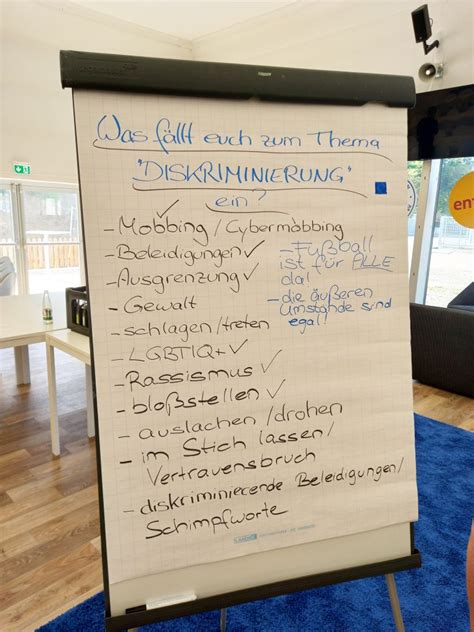 Was fällt euch zum Thema
"DISKRIMINIERUNG"
ein?
- Mobbing/Cybermobbing
- Beleidigungen ✓
- Ausgrenzung ✓
- Gewalt
- schlagen/treten
- LGBTIQ+ ✓
- Rassismus ✓
- bloßstellen ✓
- auslachen/drohen
- im Stich lassen/
Vertrauensbruch
- diskriminierende Beleidigungen/
Schimpfworte
- Fußball
ist für ALLE
da!
- die äußeren
Umstände sind
egal!
ent